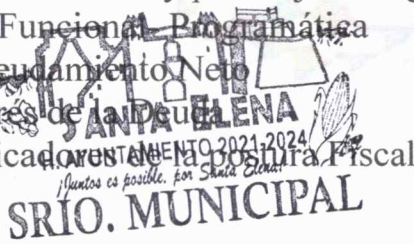 Funcional Programática
eudamiento Neto
es de la Deuda
icadores de la postura Fiscal
SANTA ELENA
H. AYUNTAMIENTO 2021-2024
¡Juntos es posible, por Santa Elena!
SRIO. MUNICIPAL